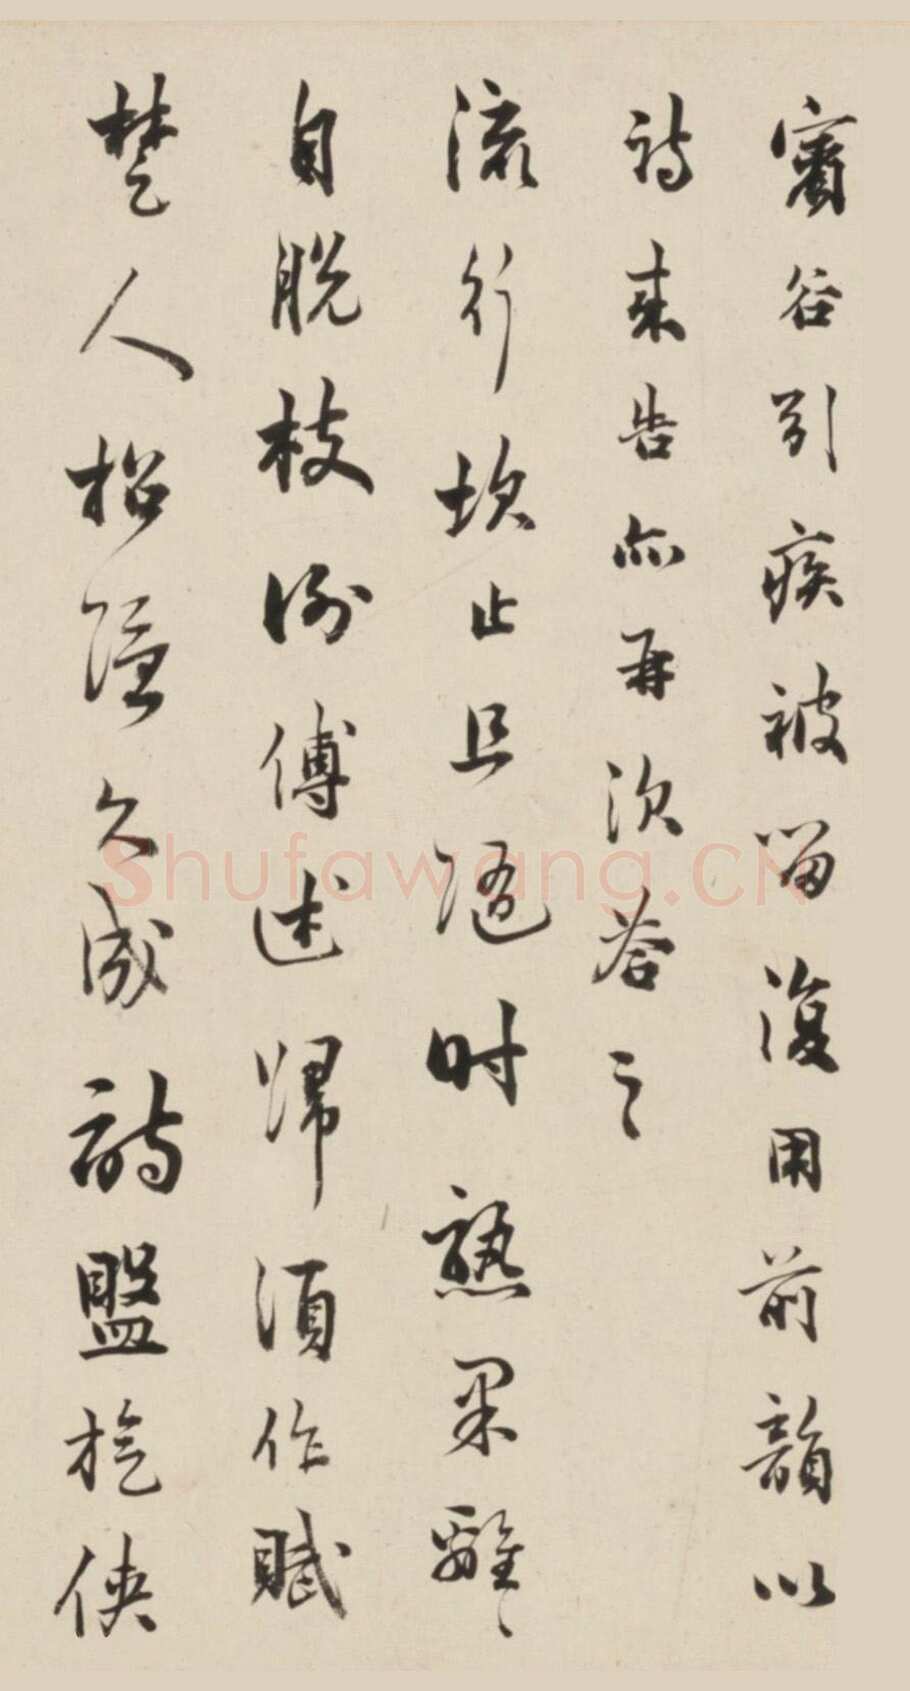 賓谷引疾被留復用前韻以
詩來告亦再次答之
流行坎止且隨時熟果離〻
自脫枝謝傅述歸須作賦
楚人招隱久成詩盟於俠
Shufawang.CN